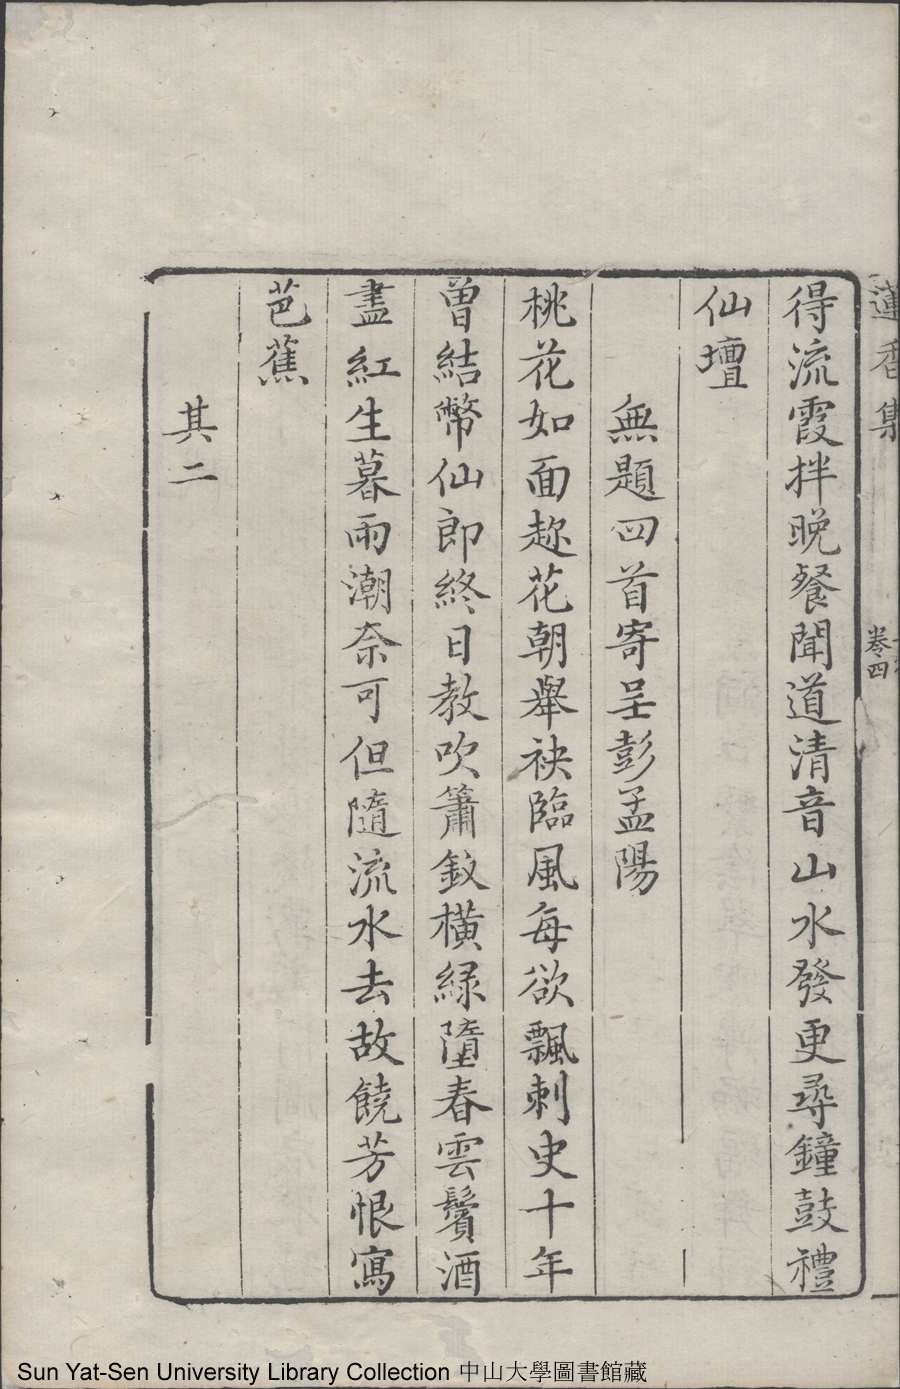 蓮香集
卷四
得流霞拌晚餐聞道清音山水發更尋鐘鼓禮
仙壇
無題四首寄呈彭孟陽
桃花如面趂花朝舉袂臨風每欲飄刺史十年
曾結幣仙郎終日教吹簫釵橫緑墮春雲鬢酒
盡紅生暮雨潮奈可但隨流水去故饒芳恨寫
芭蕉
其二
Sun Yat-Sen University Library Collection 中山大學圖書館藏